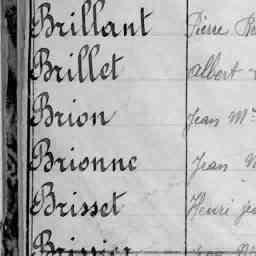 Brillant Pierre
Brillet Albert
Brion Jean M
Brionne Jean
Brisset Henri